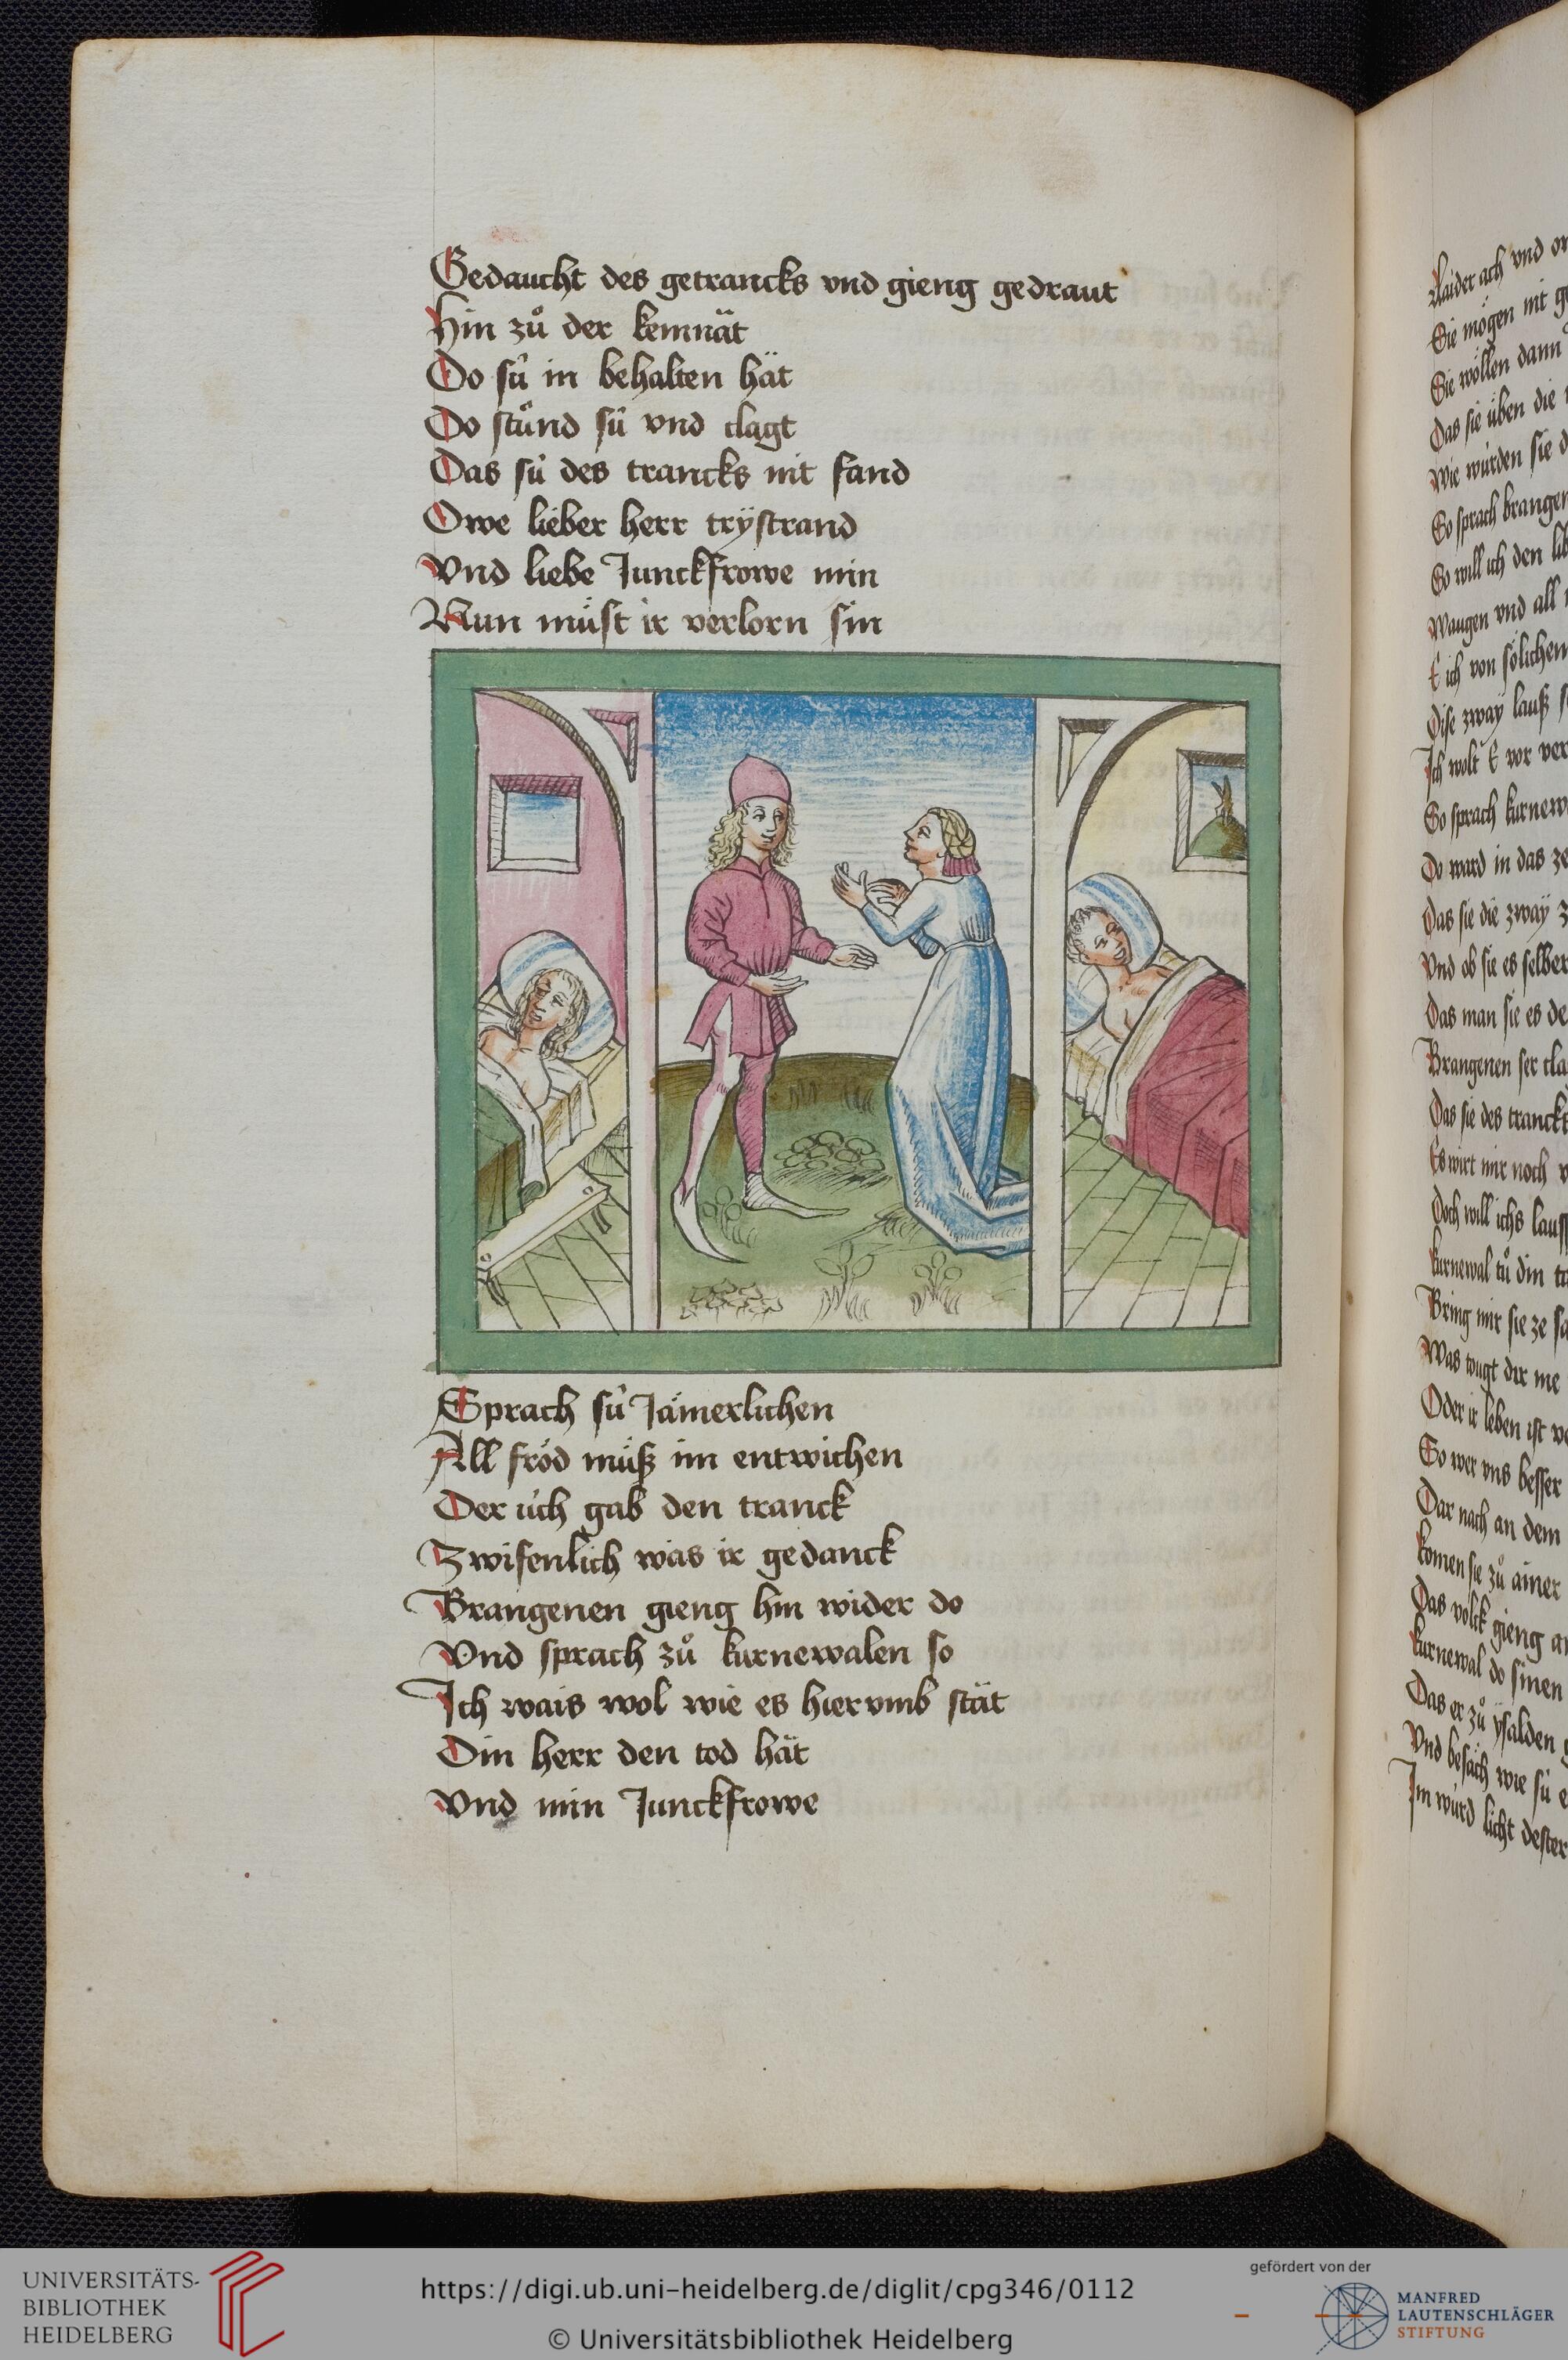 Gedaucht des getrancks vnd gieng gedraut
Hin zů der kemnät
Do sü in behalten hät
Do stůnd sü vnd clagt
Das sü des trancks nit fand
Owe lieber herr trÿstrand
Vnd liebe Junckfrowe min
Nun müst ir verlorn sin
Sprach sü Jämerlichen
All fröd müß im entwichen
Der üch gab den tranck
Zwifenlich was ir gedanck
Brangenen gieng hin wider do
Vnd sprach zů kurnewalen so
Ich wais wol wie es hier vmb stät
Din herr den tod hät
Vnd min Junckfrowe
Laider ach vnd
Sie mögen nit
Sie wöllen dann
Das sie üben die
Wie würden sie
So sprach brangen
So will ich den
Waugen vnd all
E ich von sölichen
Dise zway lauß
Ich wolt E vor
So sprach kurnew
Do ward in das
Das sie die zwaÿ
Vnd ob sie es selber
Das man sie es
Brangenen ser cla
Das sie des tranck
Es wirt mir noch
Doch will ichs lauss
kurnewal tů din
Bring mir sie ze
Was tougt dir me
Oder ir leben ist
So wer vns besser
Dar nach an dem
komen sie zů ainer
Das volck gieng
kurnewal do sinen
Das er zů ysalden
Vnd besäch wie sü
Im würd licht dester
UNIVERSITÄTS-
BIBLIOTHEK
HEIDELBERG
https://digi.ub.uni-heidelberg.de/diglit/cpg346/0112
© Universitätsbibliothek Heidelberg
gefördert von der
MANFRED
LAUTENSCHLÄGER
STIFTUNG